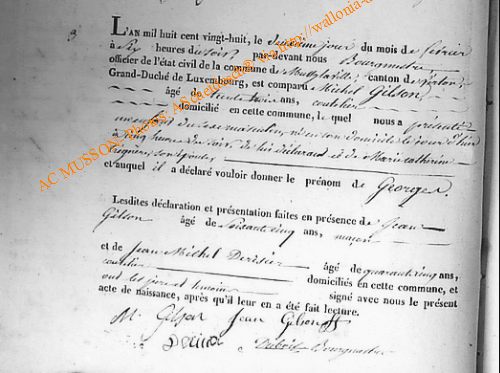 3
L'AN mil huit cent vingt-huit, le jour du mois de février
à six heures du soir par-devant nous Bourgmestre
officier de l'état civil de la commune de canton de Virton,
Grand-Duché de Luxembourg, est comparu Michel Gilson
âgé de trente trois ans, coutelier
domicilié en cette commune, le quel nous a présenté
un enfant du sexe masculin, né en son domicile le jour d'hier
à cinq heures du soir, de lui déclarant et de Marie Catherine
son épouse,
et auquel il a déclaré vouloir donner le prénom de Georges.
Lesdites déclaration et présentation faites en présence de Jean
Gilson âgé de soixante cinq ans, maçon
et de Jean Michel âgé de quarante cinq ans,
coutelier domiciliés en cette commune, et
ont les père et témoins signé avec nous le présent
acte de naissance, après qu'il leur en a été fait lecture.
M. Gilson Jean Gilson
Bourgmestre
AC MUSSON, Photos